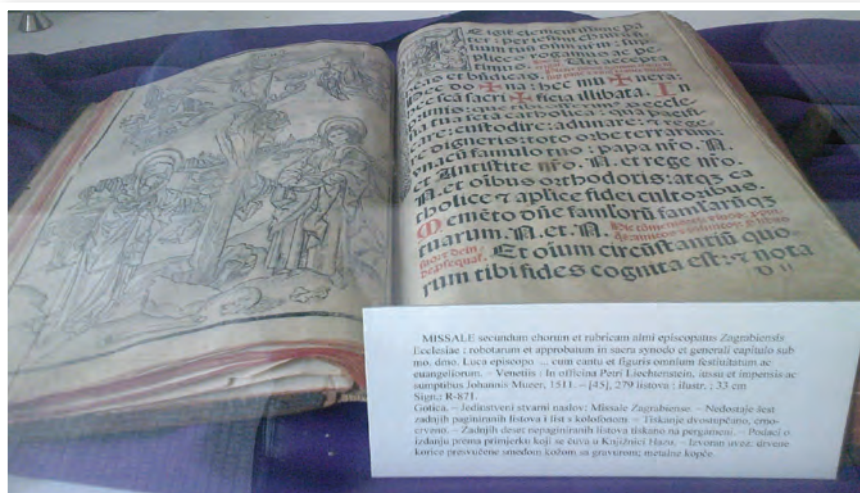 igit clementissime pa
plices rogamus ac pe
timus. Uti accepta
beas et bñdicas.
hec do ✠ na: hec mu ✠ nera:
hec scã sacri ✠ ficia illibata. In
eccle
sia tua scta catholica: quã pacifi
care: custodire: adunare: et rege
re digneris: toto orbe terrarum:
vnacũ famulo tuo: papa nro. N.
et Antistite nro. N. et rege nro.
N. et oibus orthodoxis: atqz ca
tholice et aplice fidei cultoribus.
Memẽto dñe famlorũ famlarũqz
tuarum. N. et. N.
Et oium circũstantiũ quo
rum tibi fides cognita est: et nota
MISSALE secundum chorum et rubricam almi episcopatus Zagrabiensis
Ecclesiae : roboratarum et approbatum in sacra synodo et generali capitulo sub
dmo. Luca episcopo ... cum cantu et figuris omnium festiuitatum ac
euangeliorum. – Venetiis : In officina Petri Liechtenstein, iussu et impensis ac
sumptibus Johanis Muer, 1511. – [45], 279 listova : ilustr. ; 33 cm
Sign.: R-871.
Gotica. – Jedinstveni stvarni naslov: Missale Zagrabiense. – Nedostaje šest
zadnjih paginiranih listova i list s kolofonom. – Tiskanje dvostupčano, crno-
crveno. – Zadnjih deset nepaginiranih listova tiskano na pergameni. – Podaci o
izdanju prema primjerku koji se čuva u Knjižnici Hazu. – Izvoran uvez: drvene
korice presvučene smeđom kožom sa gravurom; metalne kopče.